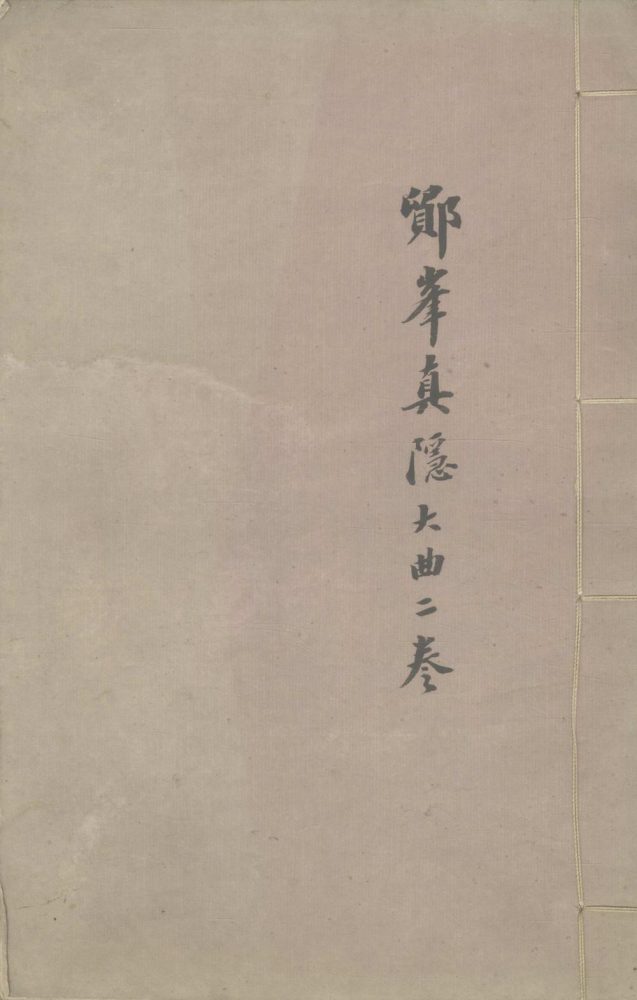 鄮峯真隱大曲二卷